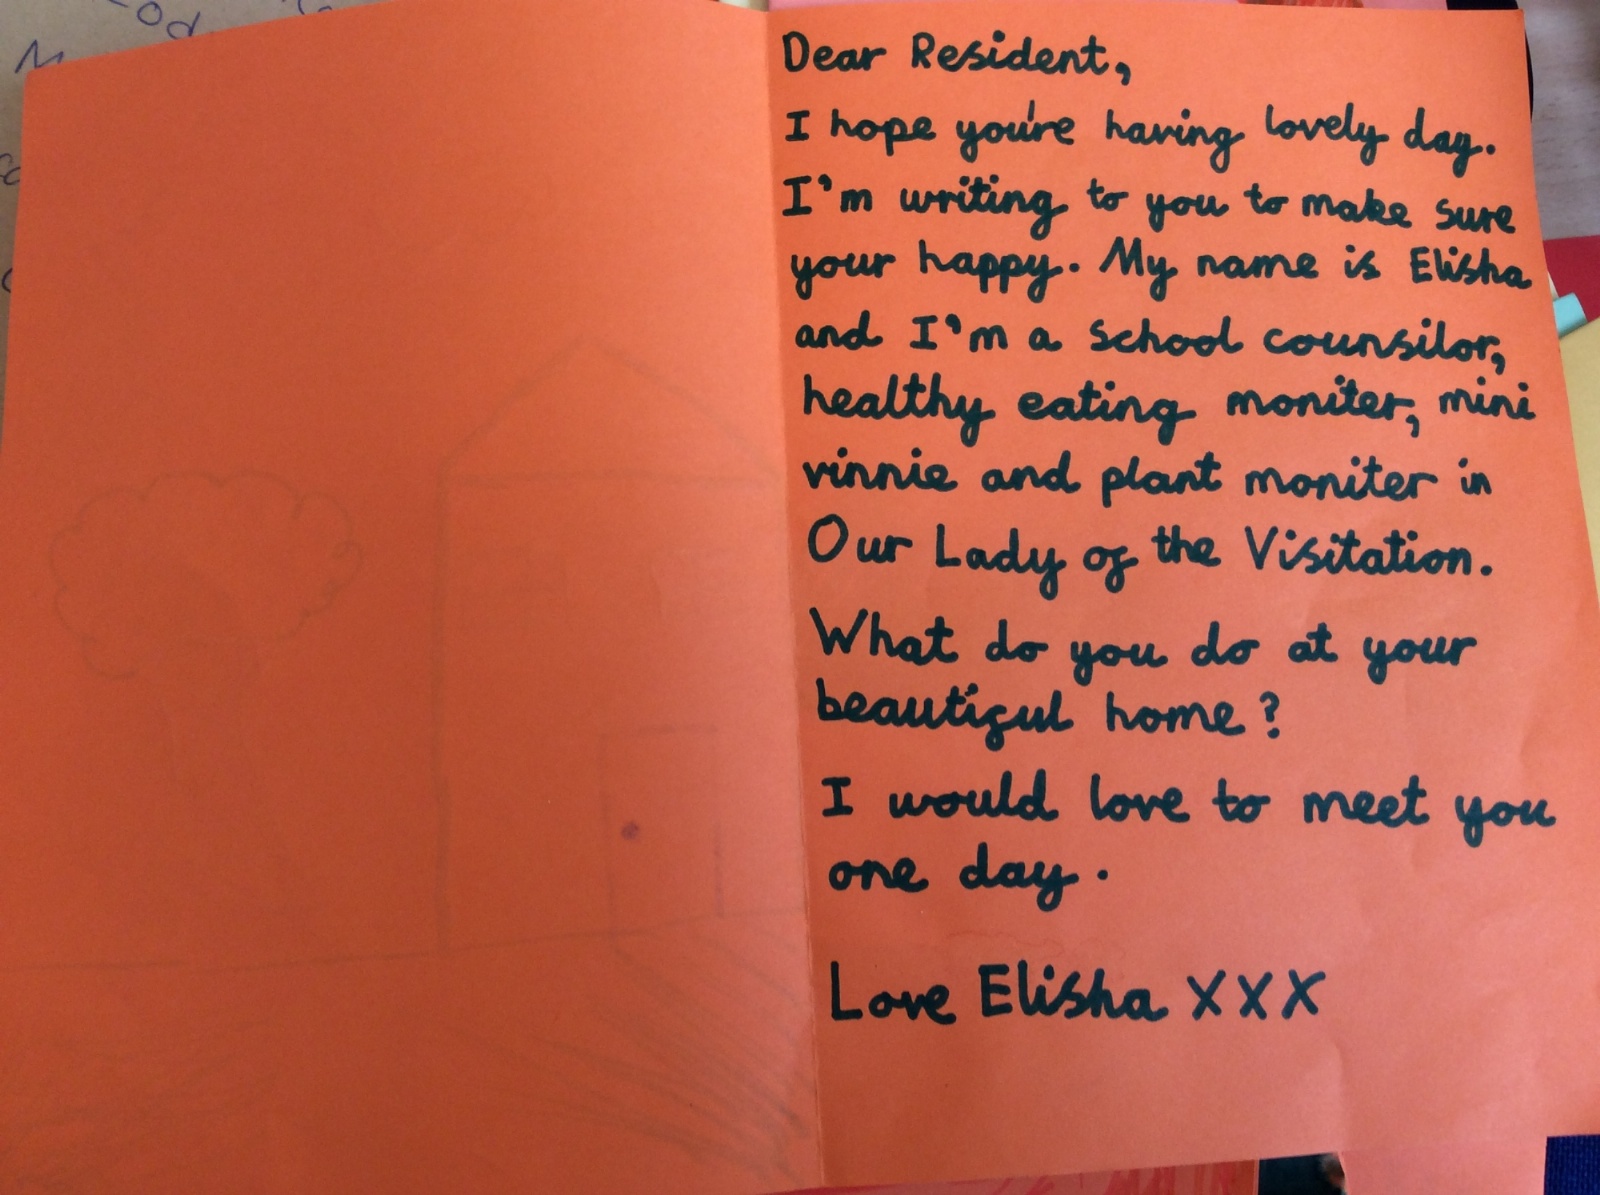 Dear Resident,
I hope you're having lovely day.
I'm writing to you to make sure
your happy. My name is Elisha
and I'm a school counsilor,
healthy eating moniter, mini
vinnie and plant moniter in
Our Lady of the Visitation.
What do you do at your
beautiful home?
I would love to meet you
one day.
Love Elisha XXX